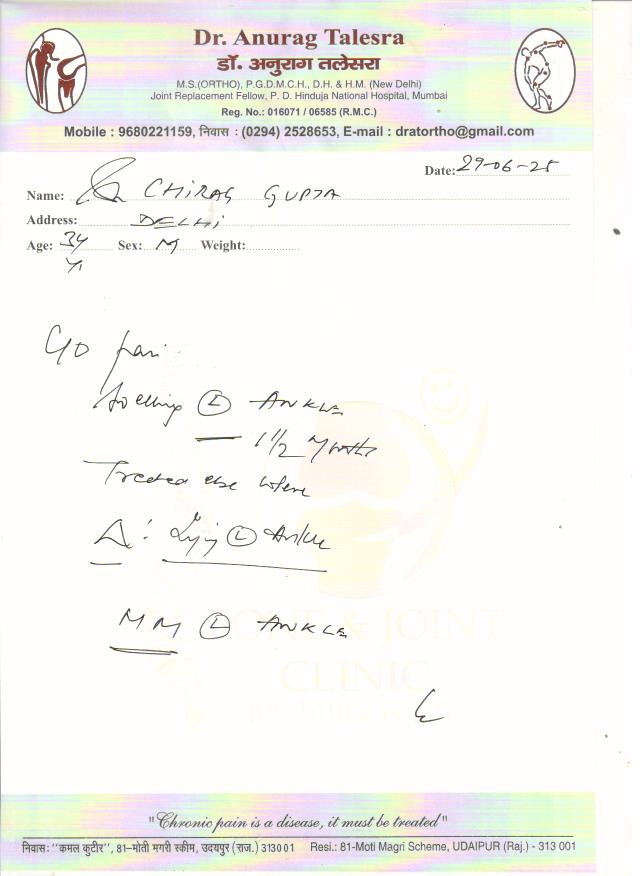 Dr. Anurag Talesra
डॉ. अनुराग तलेसरा
M.S.(ORTHO), P.G.D.M.C.H., D.H. & H.M. (New Delhi)
Joint Replacement Fellow, P. D. Hinduja National Hospital, Mumbai
Reg. No.: 016071 / 06585 (R.M.C.)
Mobile : 9680221159, निवास : (0294) 2528653, E-mail : dratortho@gmail.com
Date: 29-06-25
Name: CHIRAG GUPTA
Address: DELHI
Age: 34 Sex: M Weight:
Yr
C/O pain
Swelling (L) ANKLE
1 1/2 Month
Treated else where
Δ: Injury (L) Ankle
MM (L) ANKLE
BONE & JOINT
CLINIC
"Chronic pain is a disease, it must be treated"
निवास: "कमल कुटीर", 81-मोती मगरी स्कीम, उदयपुर (राज.) 313001 Resi.: 81-Moti Magri Scheme, UDAIPUR (Raj.) - 313 001